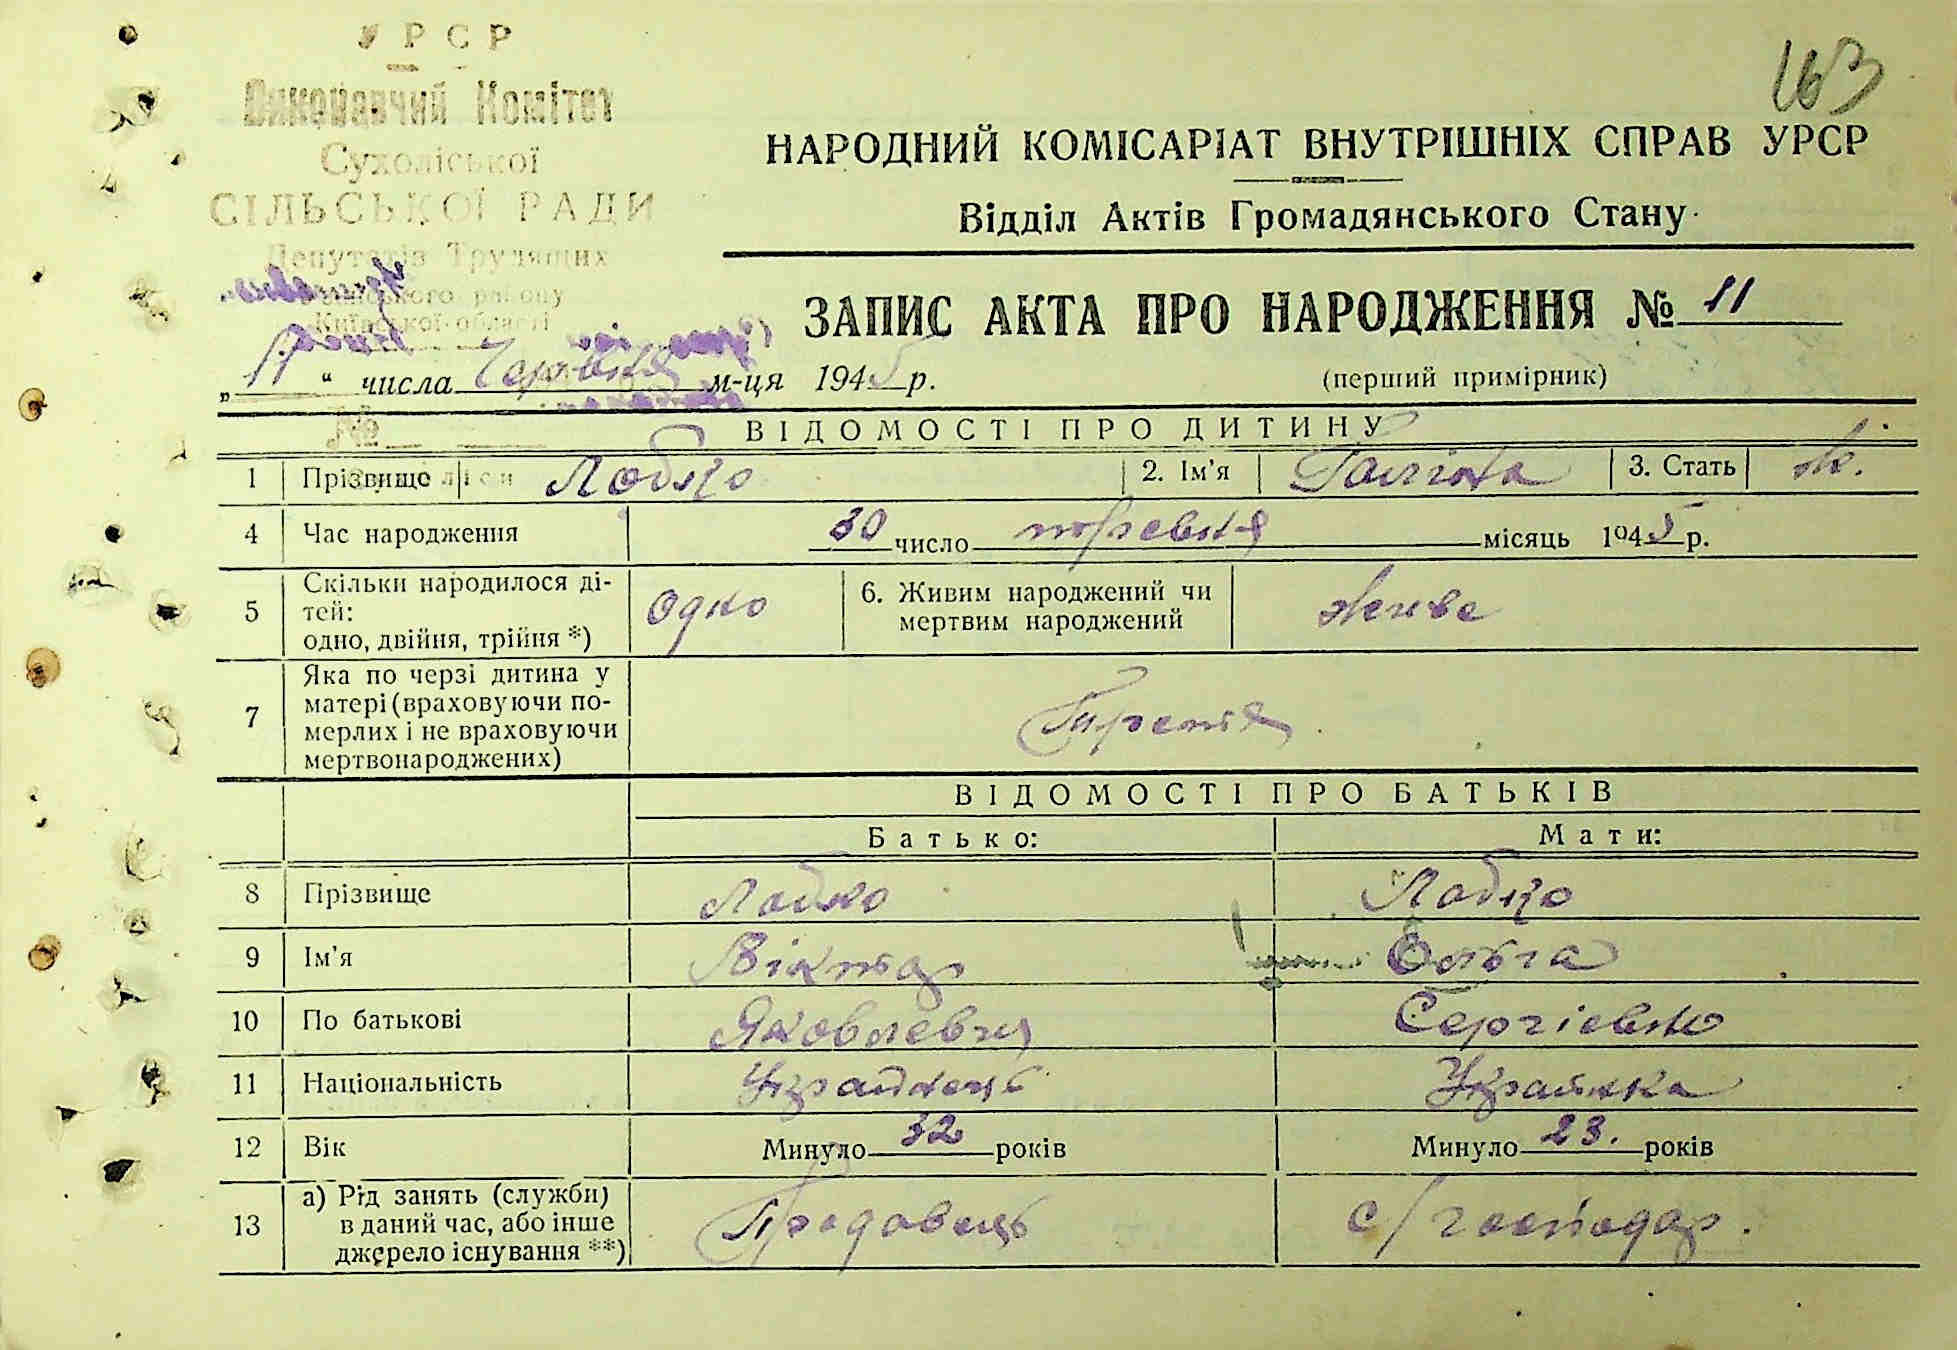 163
УРСР
Виконавчий Комітет
Сухоліської
СІЛЬСЬКОЇ РАДИ
Депутатів Трудящих
району
Київської області
№
НАРОДНИЙ КОМІСАРІАТ ВНУТРІШНІХ СПРАВ УРСР
Відділ Актів Громадянського Стану
ЗАПИС АКТА ПРО НАРОДЖЕННЯ № 11
„11“ числа Червня м-ця 1945 р.
(перший примірник)
ВІДОМОСТІ ПРО ДИТИНУ
1 Прізвище Лобко 2. Ім'я Галина 3. Стать ж.
4 Час народження 30 число травня місяць 1945 р.
5 Скільки народилося ді-
тей:
одно, двійня, трійня *) Одно
6. Живим народжений чи
мертвим народжений живе
7 Яка по черзі дитина у
матері (враховуючи по-
мерлих і не враховуючи
мертвонароджених) Третя
ВІДОМОСТІ ПРО БАТЬКІВ
Батько: Мати:
8 Прізвище Лобко Лобко
9 Ім'я Віктор Ольга
10 По батькові Яковлевич Сергієвна
11 Національність Українець Українка
12 Вік Минуло 32 років Минуло 23. років
13 а) Рід занять (служби)
в даний час, або інше
джерело існування **) Продовець с/господар.